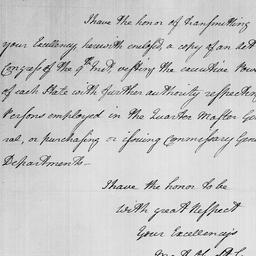 I have the honor of transmitting
your Excellency herewith enclosed, a copy of an Act
Congress of the 9th Inst. vesting the executive Pow
of each State with further authority respecting
Persons employed in the Quarter Master Gen
ral, or purchasing or issuing Commissary Genera
Departments—
I have the honor to be
With great Respect
Your Excellency's